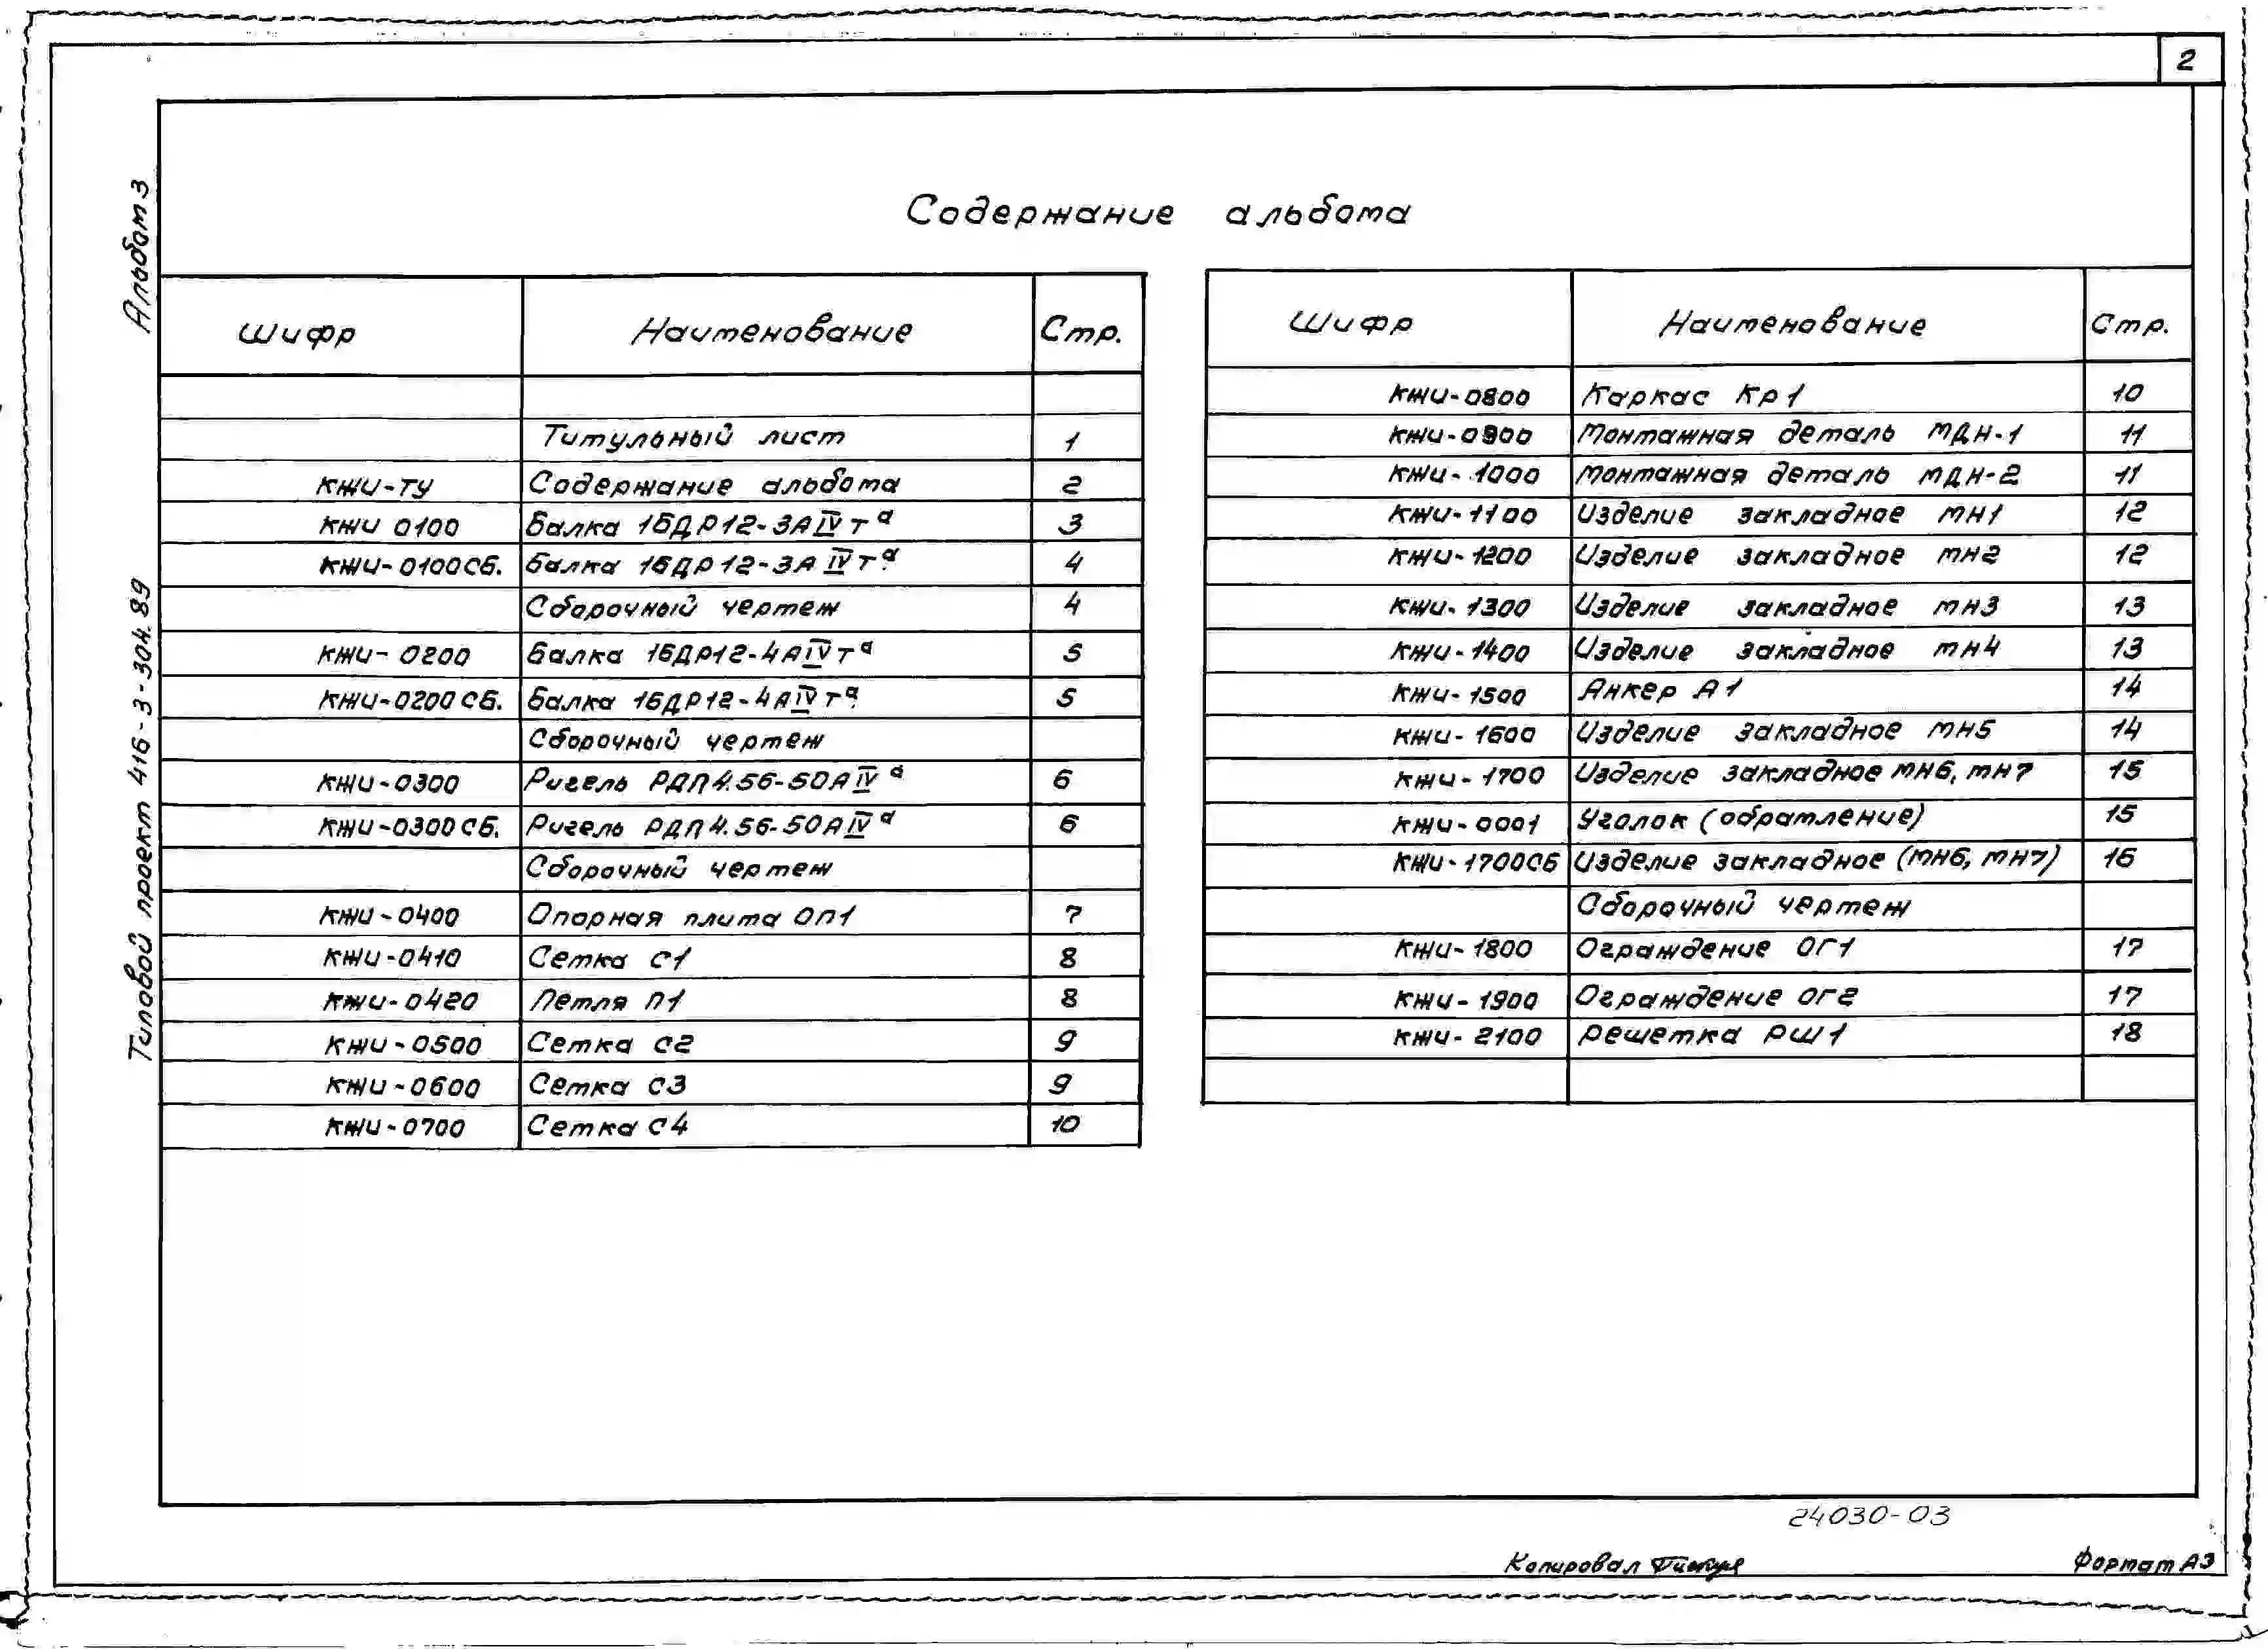 2
Альбом 3
Типовой проект 416-3-304.89
Содержание альбома
Шифр Наименование Стр.
Титульный лист 1
КЖИ-ТУ Содержание альбома 2
КЖИ 0100 Балка 1БДР12-3АIVтᵃ 3
КЖИ-0100СБ. Балка 1БДР12-3АIVтᵃ. 4
Сборочный чертеж 4
КЖИ-0200 Балка 1БДР12-4АIVтᵃ 5
КЖИ-0200СБ. Балка 1БДР12-4АIVтᵃ. 5
Сборочный чертеж
КЖИ-0300 Ригель РДП4.56-50АIVᵃ 6
КЖИ-0300СБ. Ригель РДП4.56-50АIVᵃ 6
Сборочный чертеж
КЖИ-0400 Опорная плита ОП1 7
КЖИ-0410 Сетка С1 8
КЖИ-0420 Петля П1 8
КЖИ-0500 Сетка С2 9
КЖИ-0600 Сетка С3 9
КЖИ-0700 Сетка С4 10
Шифр Наименование Стр.
КЖИ-0800 Каркас Кр1 10
КЖИ-0900 Монтажная деталь МДН-1 11
КЖИ-1000 Монтажная деталь МДН-2 11
КЖИ-1100 Изделие закладное МН1 12
КЖИ-1200 Изделие закладное МН2 12
КЖИ-1300 Изделие закладное МН3 13
КЖИ-1400 Изделие закладное МН4 13
КЖИ-1500 Анкер А1 14
КЖИ-1600 Изделие закладное МН5 14
КЖИ-1700 Изделие закладное МН6, МН7 15
КЖИ-0001 Уголок (обрамление) 15
КЖИ-1700СБ Изделие закладное (МН6, МН7) 16
Сборочный чертеж
КЖИ-1800 Ограждение ОГ1 17
КЖИ-1900 Ограждение ОГ2 17
КЖИ-2100 Решетка РШ1 18
24030-03
Копировал
Формат А3